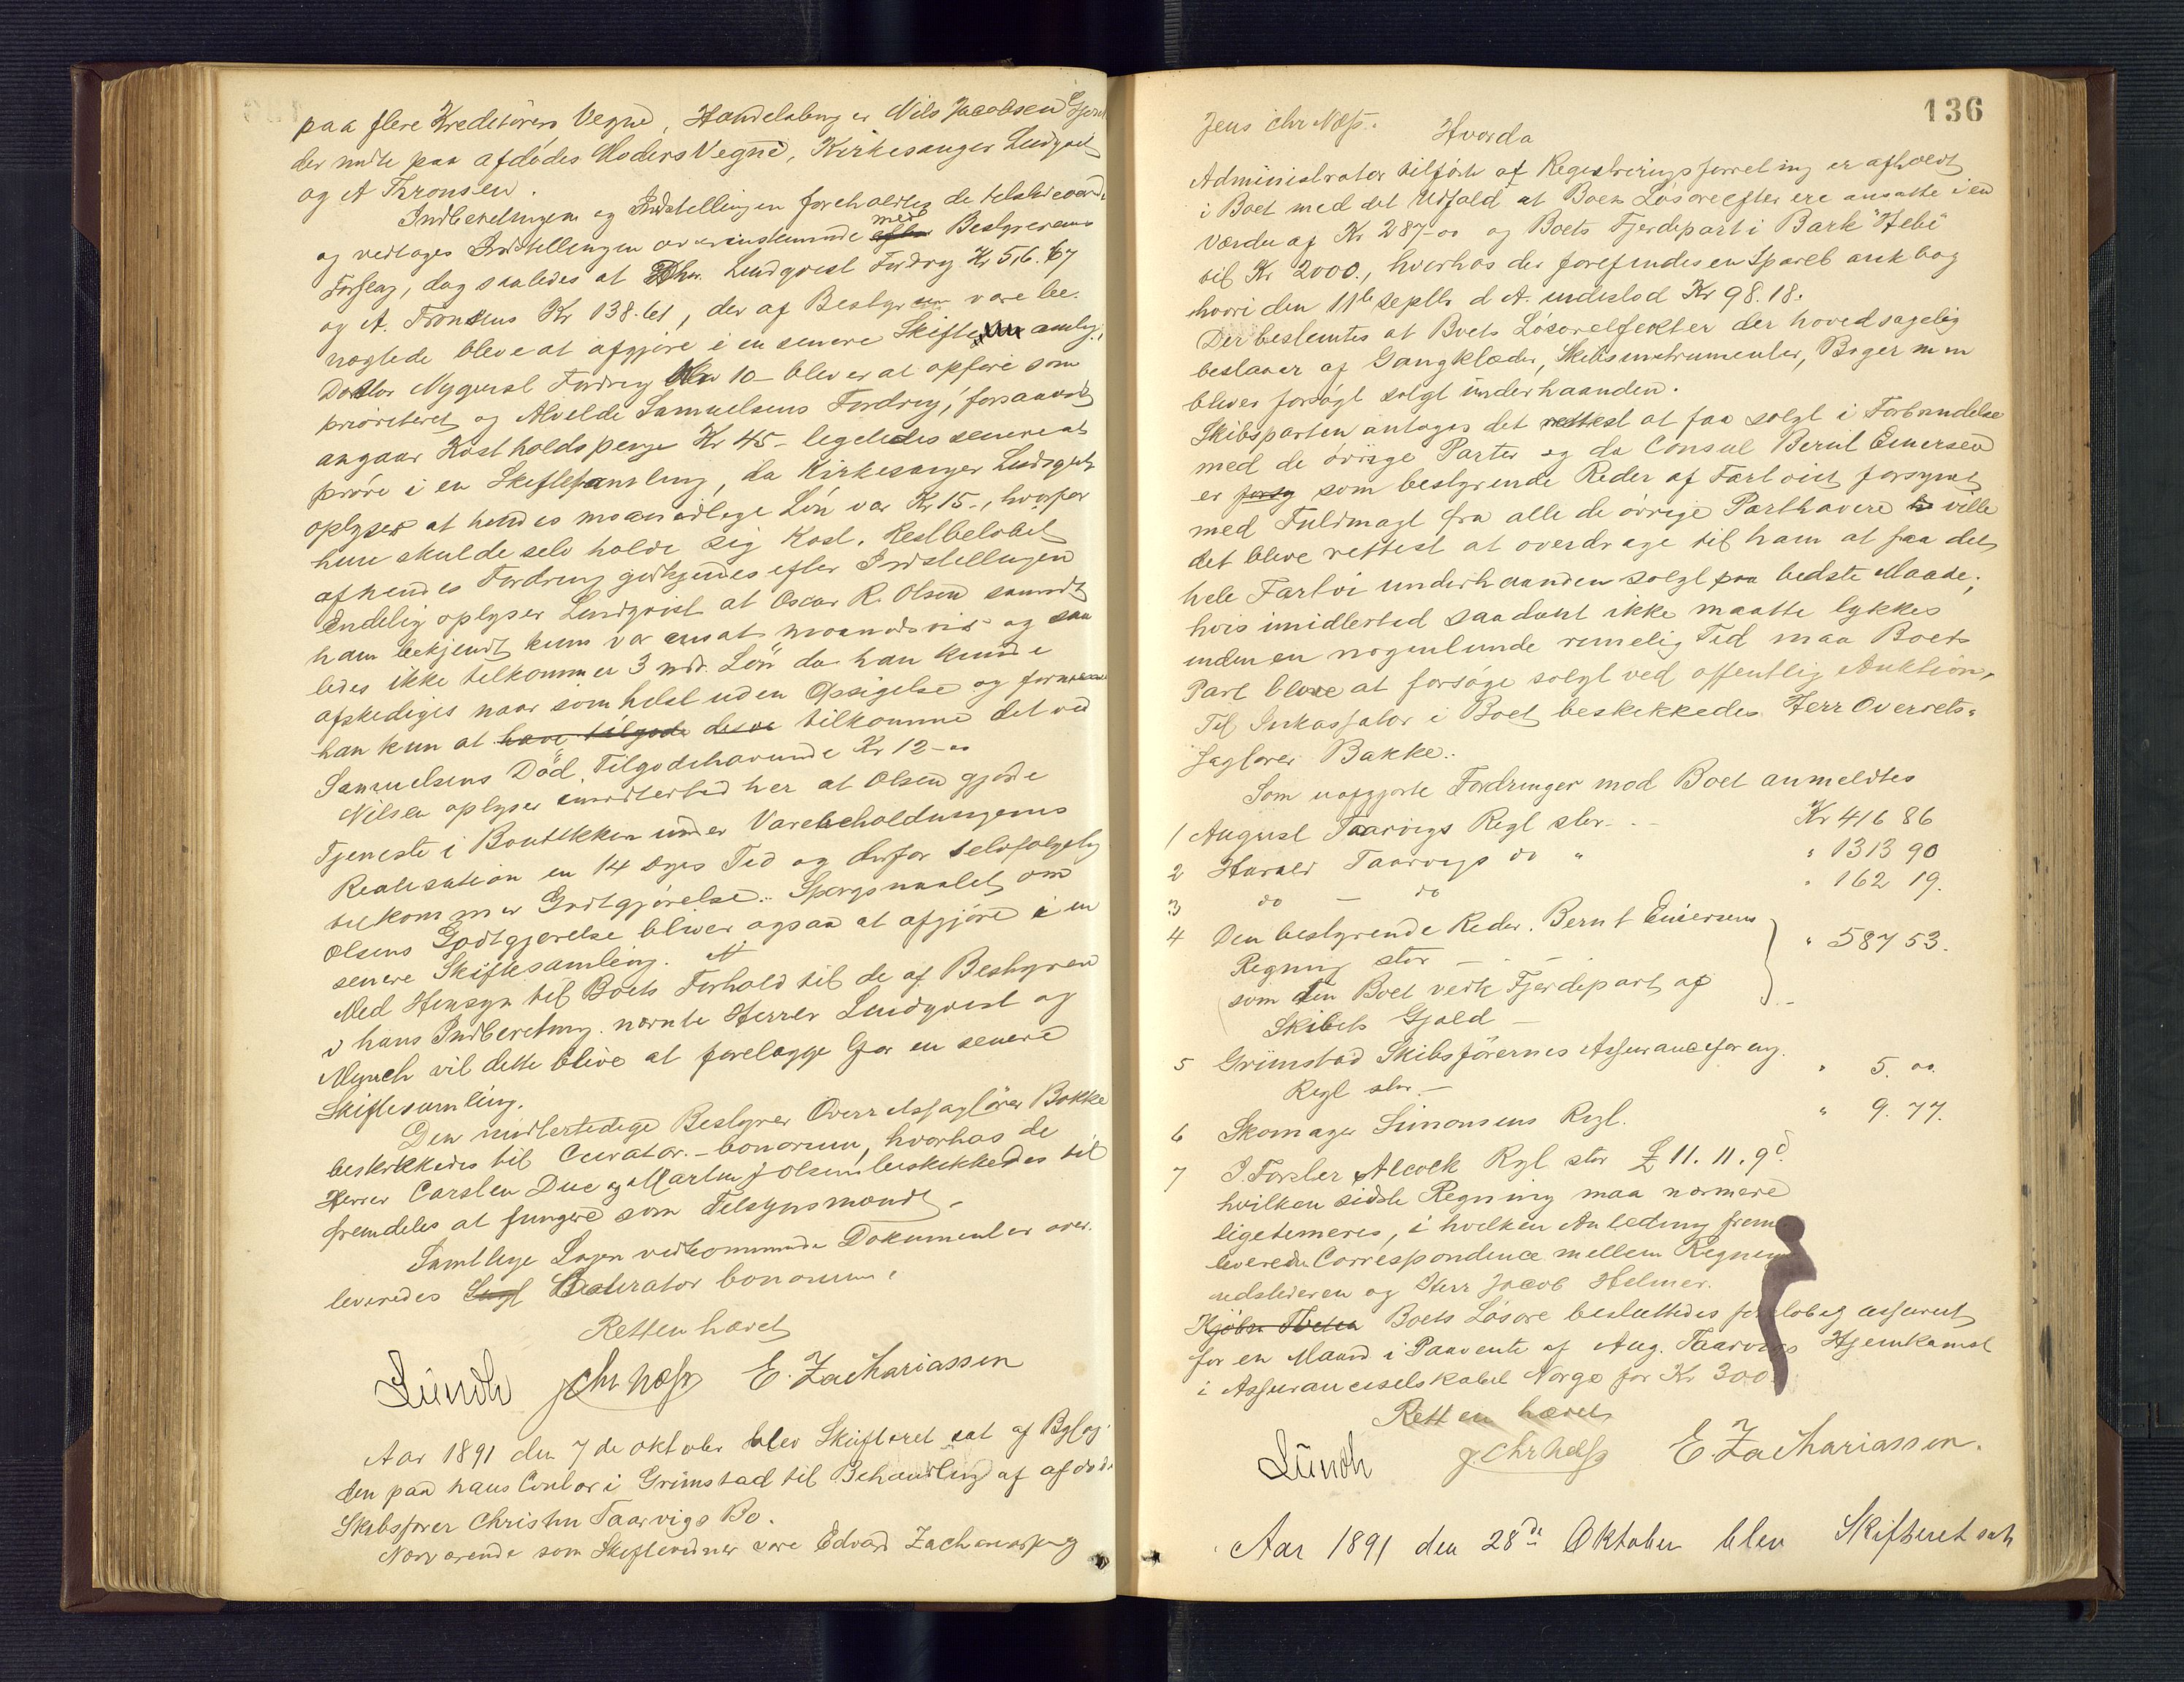 paa flere Kreditorers Vegne, Handelsbmg er Nils Jacobsen
der mdte paa afdödes Moders Vegne, Kirkesanger Lindqvist
og A Thronsen.
Indberetningen og Indstillingen foreholdtes de tilstedevær
og vedtoges Indstillingen overensstemmende med Bestyrerens
Forslag, dog saaledes at Dhr. Lindqvist Fordrg Kr 516.67
og A. Tronsens Kr 138.61, der af Bestyreren vare be-
nægtede bleve at afgjöre i en senere Skiftesamlg,
Doktor Nyquist Fordring Kr 10 – blev er at opföre som
prioriteret og Alvilde Samuelsens Fordrg, forsaavidt
angaar Kostholdspenge Kr 45 – ligeledes senere at
pröve i en Skiftesamling, da Kirkesanger Lindqvist
oplyser at hendes maanedlige Lön var Kr 15., hvorfor
hun skulde selv holde sig Kost. Restbelöbet
af hendes Fordring godkjendes efter Indstillingen
Endelig oplyser Lindqvist at Oscar R. Olsen saavidt
ham bekjendt kun var ansat maanedsvis og saa
ledes ikke tilkommer 3 mdr. Lön da han kunde
afskediges naar somhelst uden Opsigelse og formener
han kun at have tilgode derve tilkomme det ved
Samuelsens Död. Tilgodehavende Kr 12-00
Nilsen oplyser imidlertid her at Olsen gjorde
Tjeneste i Boutikken under Varebeholdningens
Realisation en 14 Dages Tid og derfor selvfölgelig
tilkommer Godtgjörelse. Spörgsmaalet om
Olsens Godtgjörelse bliver ogsaa at afgjöre i en
senere Skiftesamling.
Med Hensyn til Boets Forhold til de af Bestyreren
i hans Indberetning nævnte Herrer Lindqvist og
Munch vil dette blive at forelægge for en senere
Skiftesamling.
Den midlertidige Bestyrer Overretssagförer Bakke
beskikkedes til Curator – bonorum, hvorhos de
Herrer Carsten Due og Martin J Olsen beskikkedes til
fremdeles at fungere som Tilsynsmænd –
Samtlige Sagen vedkommende Dokumenter over-
leveredes Curator bonorum.
Retten hævet
Lündh J Chr Næss E. Zachariassen
Aar 1891 den 7 de oktober blev Skifteret sat af Byfog-
den paa hans Contor i Grimstad til Behandling af afdöde
Skibsförer Christen Taarvigs Bo.
Nærværende som Skiftevidner vare Edvard Zachariassen og
136
Jens Chr Næss. Hvorda
Administrator tilförte at Registreringsforretning er afholdt
i Boet med det Udfald at Boets Lösöreefter ere ansatte i en
Værdi af Kr 287-00 og Boets Fjerdepart i Bark "Hebe"
til Kr 2000., hvorhos der forefindes en Sparebankbog
hvori den 11te septbr d A. indestod Kr 98.18.
Der bestemtes at Boets Lösöreeffekter der hovedsagelig
bestaaer af Gangklæder, Skibsinstrumenter, Böger m m
bliver forsögt solgt underhaanden.
Skibsparten antoges det rettest at faa solgt i Forbindelse
med de övrige Parter og da Consul Bernt Einersen
er forsy som bestyrende Reder af Fartöiet forsynet
med Fuldmagt fra alle de övrige Parthavere ville
det blive rettest at overdrage til ham at faa det
hele Fartöi underhaanden solgt paa bedste Maade;
hvis imidlertid saadant ikke maatte lykkes
inden en nogenlunde rimelig Tid maa Boets
Part blive at forsöge solgt ved offentlig Auktion,
Til Inkassator i Boet beskikkedes Herr Overrets-
sagförer Bakke.
Som uafgjorte Fordringer mod Boet anmeldtes
1 August Taarvigs Regl stor - - Kr 416 86
2 Harald Taarvigs do " " 1313 90
3 do – do " 162 19.
4 Den bestyrende Reder. Bernt Einersens
Regning stor – - - " 587 53.
som den Boet vedk Fjerdepart af
Skibets Gjæld –
5 Grimstad Skibsförernes Assuranceforeng.
Regl stor – " 5. 00.
6 Skomager Simonsens Regl. " 9. 77.
7 J. Forster Alcock Rgl stor £ 11. 11. 9d.
hvilken sidste Regning maa nærmere
ligetimeres, i hvilken Anledning frem
leveredes Correspondence mellem Regnings
udstederen og Herr Jacob Helmer.
Boets Lösöre besluttedes foreløbig assureret
for en Maaned i Paavente af Aug. Taarvigs Hjemkomst
i Assuranceselskabet Norge for Kr 300.
Retten hævet
Lündh J. Chr Næss E. Zachariassen.
Aar 1891 den 28de Oktober blev Skifteret sat